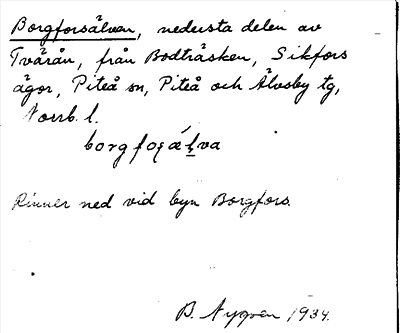 Borgforsälvan, nedersta delen av
Tvärån, från Bodträsken, Sikfors
ägor, Piteå sn, Piteå och Älvsby tg,
Norrb. l.
borgfoʂælva
Rinner ned vid byn Borgfors.
B. Nygren 1934.